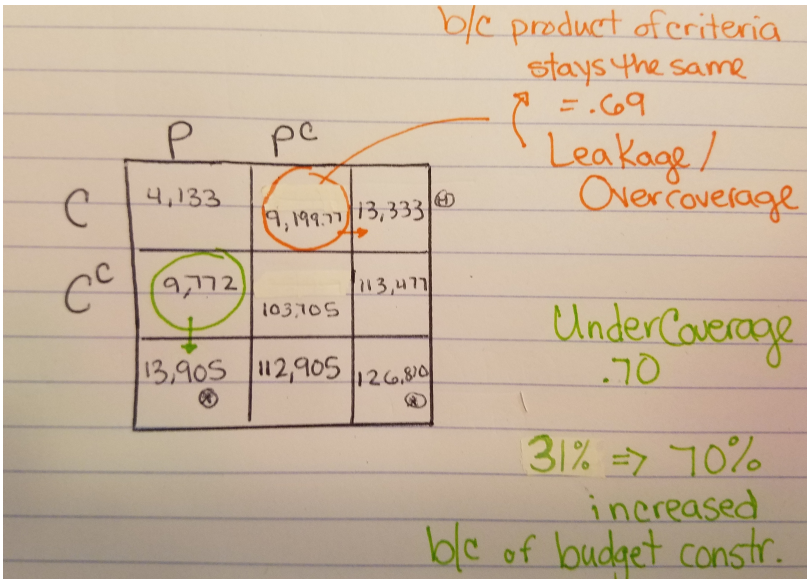 b/c product of criteria
stays the same
= .69
Leakage/
Overcoverage
P PC
C 4,133 9,199.77 13,333 H
CC 9,772 103,705 113,477
13,905 112,905 126,810
UnderCoverage
.70
31% => 70%
increased
b/c of budget constr.